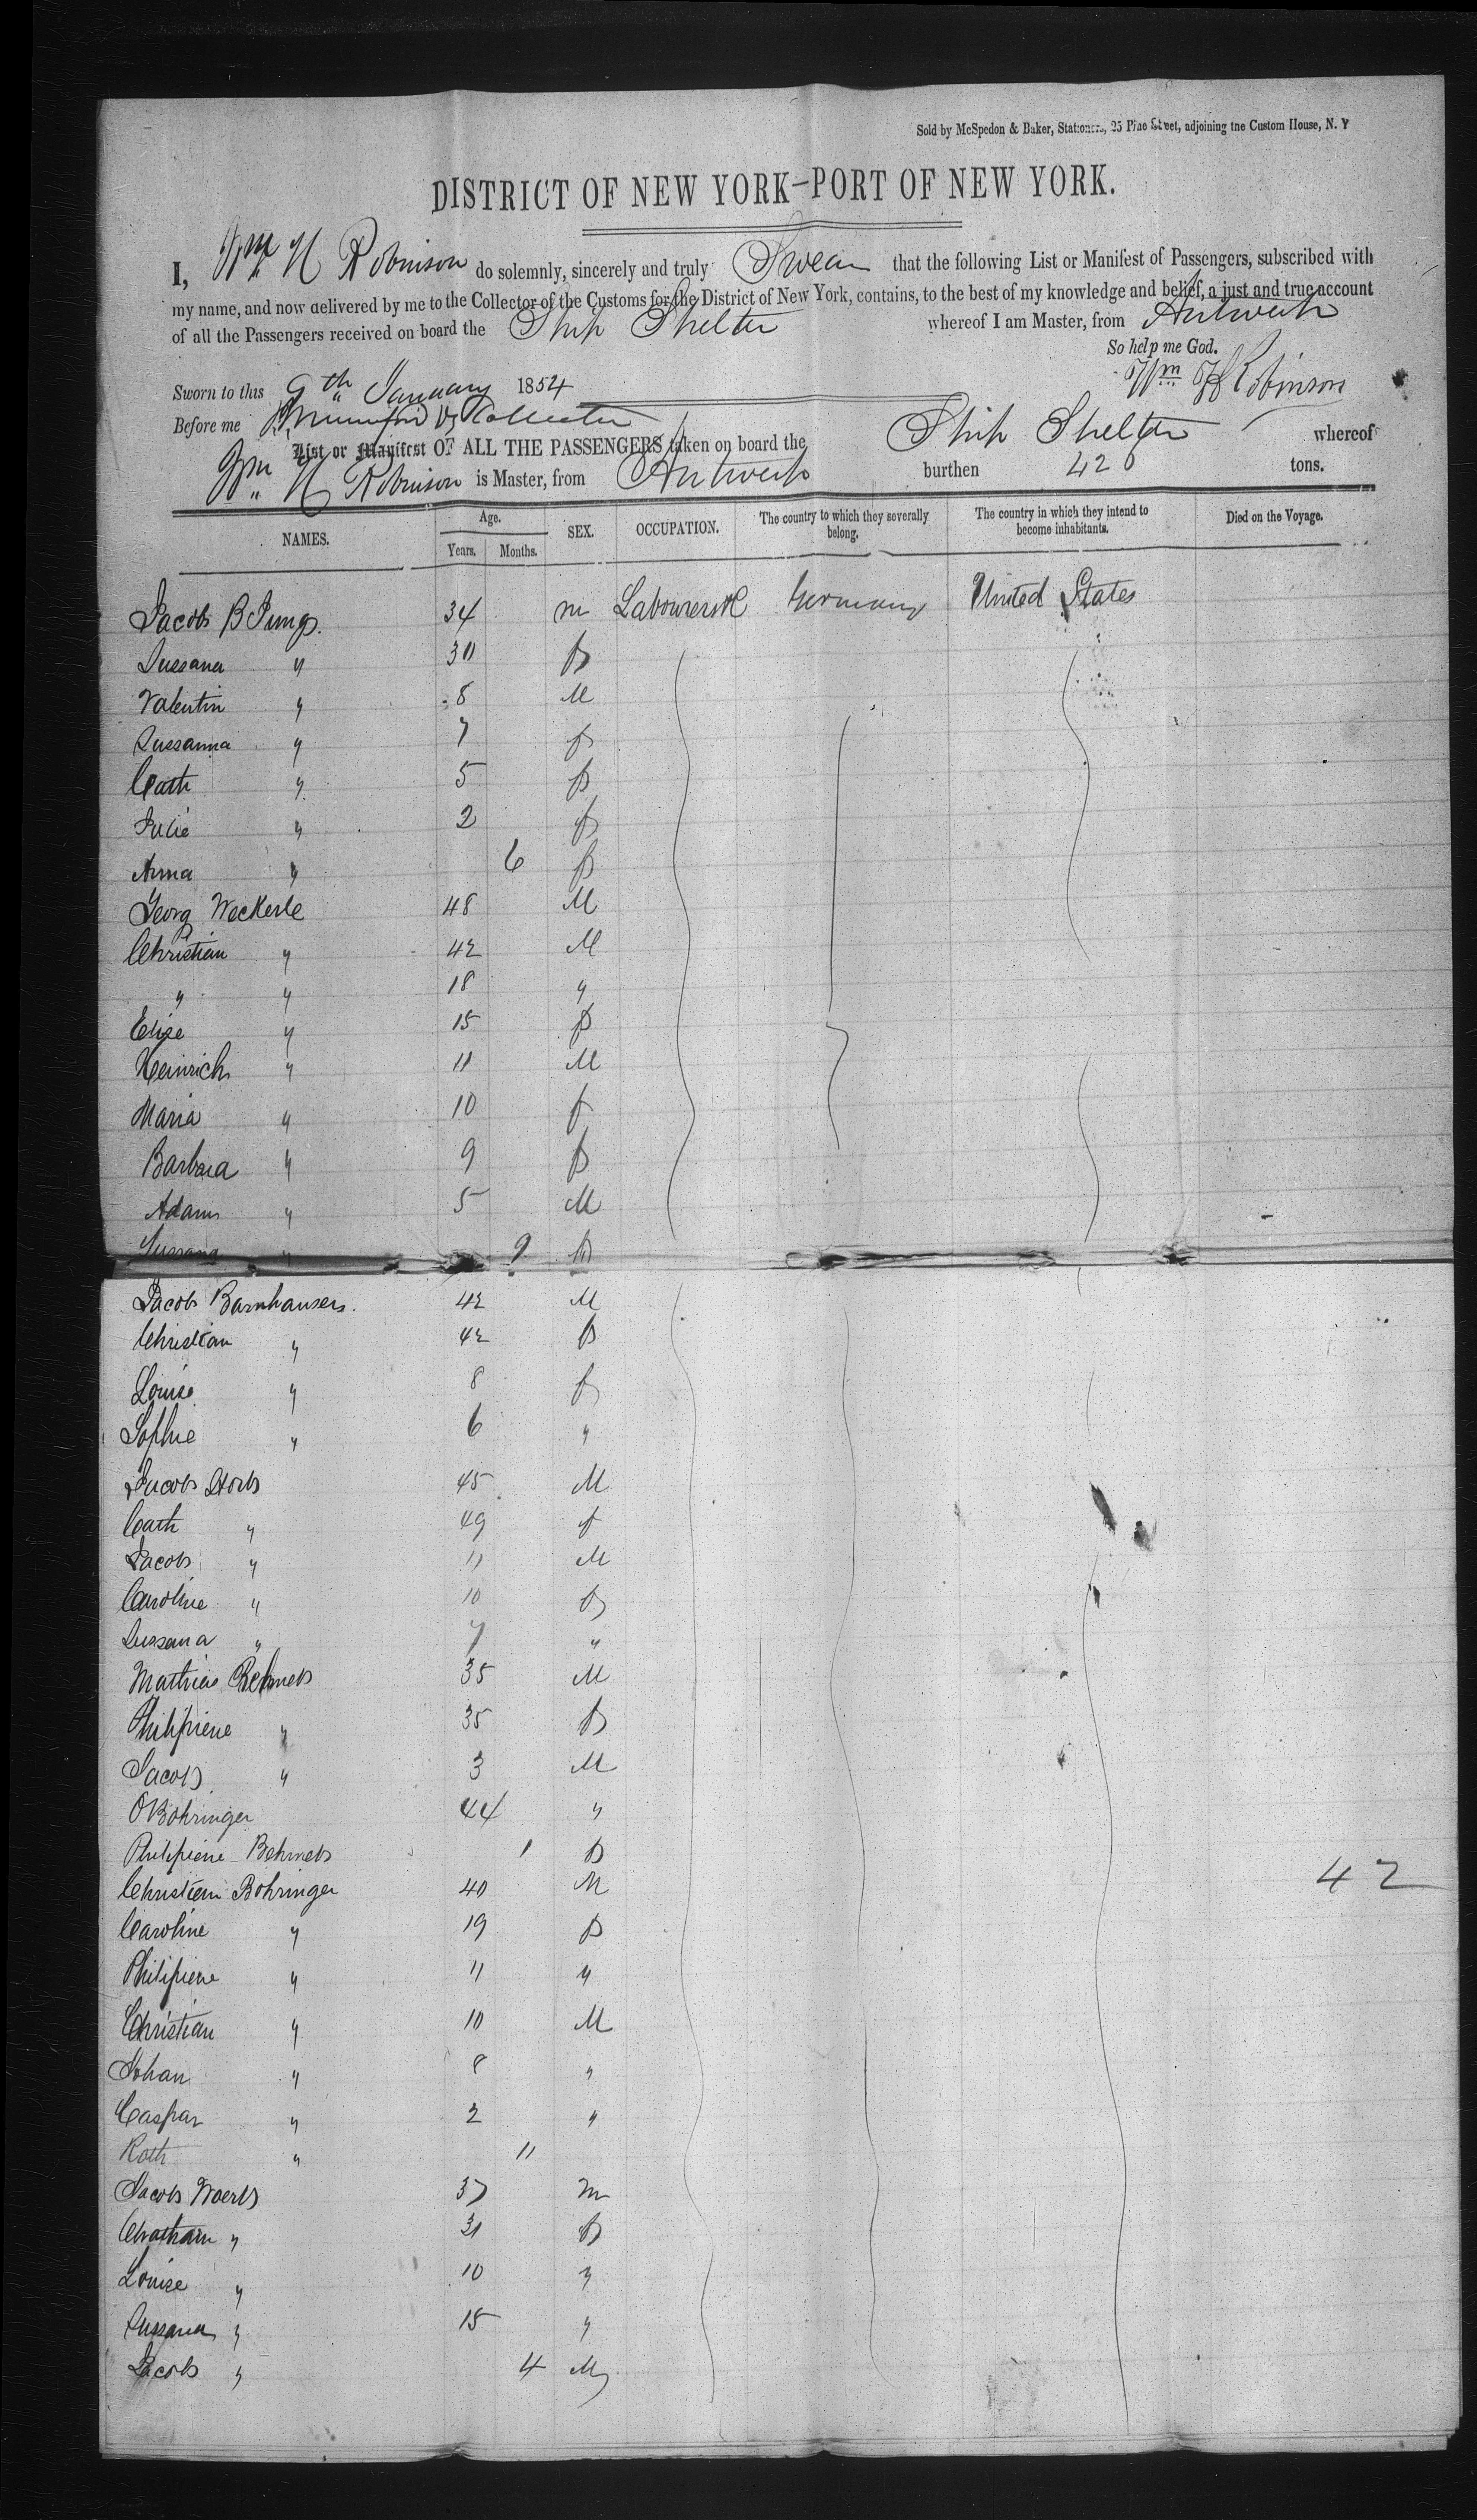 Sold by McSpedon & Baker, Stationers, 25 Pine Street, adjoining the Custom House, N. Y
DISTRICT OF NEW YORK—PORT OF NEW YORK.
I, Wm H Robinson do solemnly, sincerely and truly Swear that the following List or Manifest of Passengers, subscribed with
my name, and now delivered by me to the Collector of the Customs for the District of New York, contains, to the best of my knowledge and belief, a just and true account
of all the Passengers received on board the Ship Shelter whereof I am Master, from Antwerp
So help me God.
Sworn to this 9th January 1854 Wm H Robinson
Before me
List or Manifest OF ALL THE PASSENGERS taken on board the Ship Shelter whereof
Wm H Robinson is Master, from Antwerp burthen 420 tons.
NAMES. Age. Years. Months. SEX. OCCUPATION. The country to which they severally belong. The country in which they intend to become inhabitants. Died on the Voyage.
Jacob B Jungs. 34 m Germany United States
Sussana " 30 f
Valentin " 8 M
Sussanna " 7 f
Cath " 5 f
Julie " 2 f
Anna " 6 f
Georg Weckerle 48 M
Christian " 42 M
" " 18 "
Elise " 15 f
Heinrich " 11 M
Maria " 10 f
Barbara " 9 f
Adam " 5 M
Sussana " 9 f
Jacob Barnhausers. 42 M
Christian " 42 f
Louise " 8 f
Sophie " 6 "
Jacob 45 M
Cath " 49 f
Jacob " 11 M
Caroline " 10 f
Sussana " 7 "
Mathias Behmer 35 M
Philipiene " 35 f
Jacob " 3 M
O Bohringer 44 "
Philipiene Behmer 1 f
Christian Bohringer 40 M
42
Caroline " 19 f
Philipiene " 11 "
Christian " 10 M
Johan " 8 "
Caspar " 2 "
Roth " 11
Jacob Woerls 37 m
" 31 f
Louise " 10 "
Sussana " 15 "
Jacob " 4 M